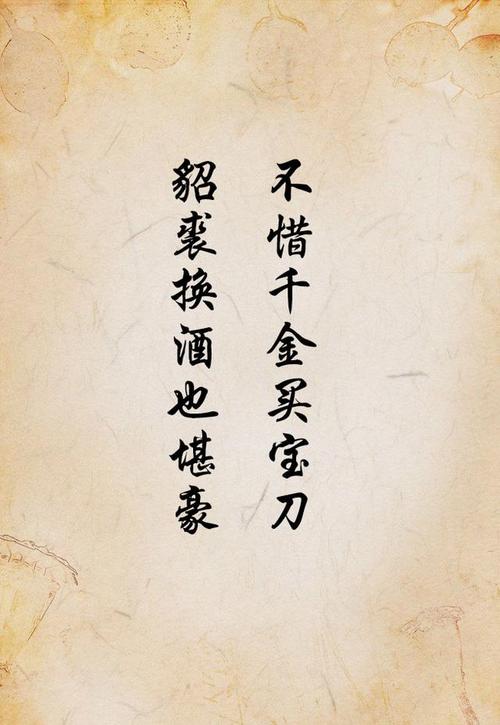 不惜千金买宝刀
貂裘换酒也堪豪